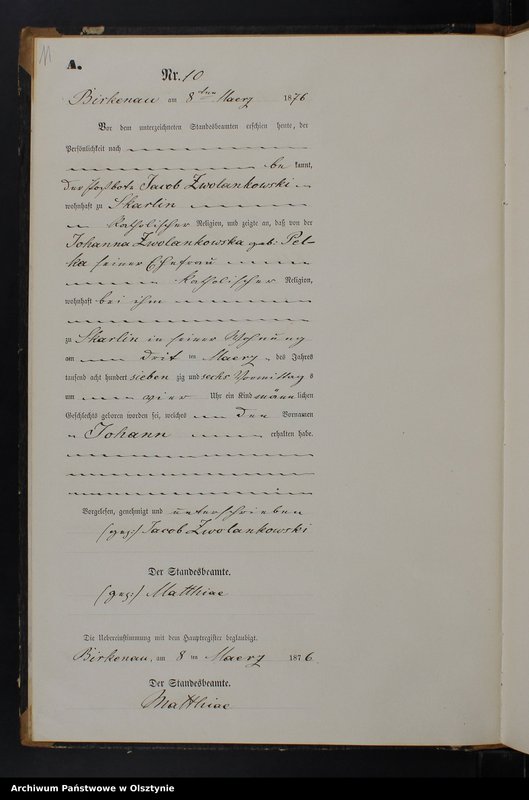 11
A.
Nr. 10
Birkenau am 8ten Maerz 1876
Vor dem unterzeichneten Standesbeamten erschien heute, der
Persönlichkeit nach
be kannt,
der Jacob Zwolankowski
wohnhaft zu Skarlin
katholischer Religion, und zeigte an, daß von der
Johanna Zwolankowska geb: Pel-
ka seiner Ehefrau
katholischer Religion,
wohnhaft bei ihm
zu Skarlin in seiner Wohnung
am drit ten Maerz des Jahres
tausend acht hundert sieben zig und sechs Vormittag s
um vier Uhr ein Kind männ lichen
Geschlechts geboren worden sei, welches den Vornamen
Johann erhalten habe.
Vorgelesen, genehmigt und unterschrieben
(gez:) Jacob Zwolankowski
Der Standesbeamte.
(gez:) Matthiae
Die Uebereinstimmung mit dem Hauptregister beglaubigt.
Birkenau, am 8 ten Maerz 1876
Der Standesbeamte.
Matthiae
Archiwum Państwowe w Olsztynie